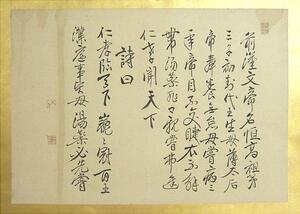 前漢文帝名恒高祖第
三子初封代王生母薄太后
帝奉養無怠母嘗病三
年帝目不交睫衣不解
帶湯藥非口親嘗弗進
仁孝聞天下
詩曰
仁孝臨天下巍巍冠百王
漢庭事賢母湯藥必先嘗